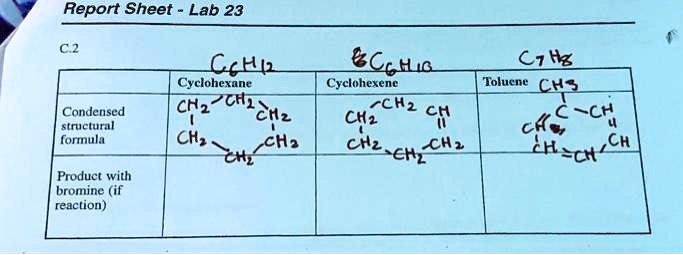 Report Sheet - Lab 23
C.2
C6H12 C6H10 C7H8
Cyclohexane Cyclohexene Toluene CH3
Condensed structural formula
CH2 CH2 CH2 CH2 CH2 CH2
CH2 CH2 CH CH2 CH2 CH2
C CH CH CH CH CH
Product with
bromine (if
reaction)